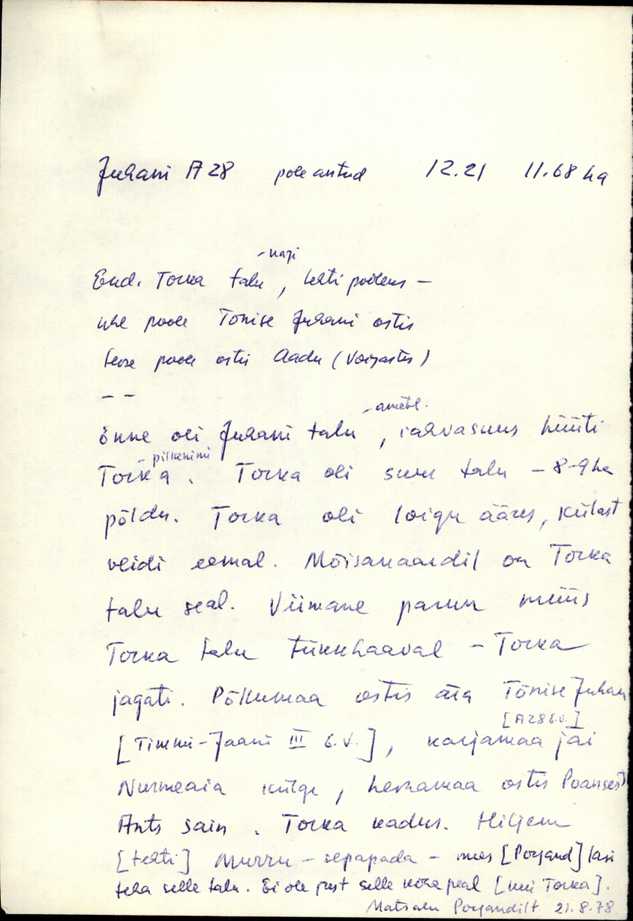 Juhani A 28 pole antud 12.21 11.68 ha
- nagi
End. Torka talu, tehti pooleks -
ühe poole Tõnise Juhani ostis
teise poole ostis Aadu (Voijastis)
- -
- ametl.
Enne oli Juhani talu, rahvasuus hüüti
- pilkenimi
Torka. Torka oli suur talu - 8-9 ha
põldu. Torka oli loigu ääres, külast
veidi eemal. Mõisakaardil on Torka
talu seal. Viimane parun müüs
Torka talu tükkhaaval - Torka
jagati. Põllumaa ostis ära Tõnise Juhan
[A28 s.v.]
[Timmi-Jaani III s.v.], karjamaa jäi
Nurmeaia külge, heinamaa ostis
Ants sain. Torka kadus. Hiljem
[tehti] Murru - sepapada - mees [Porjand] lasi
teha selle talu. Ei ole just selle koha peal [kui Torka].
Matsalu Porjandilt 21.8.78